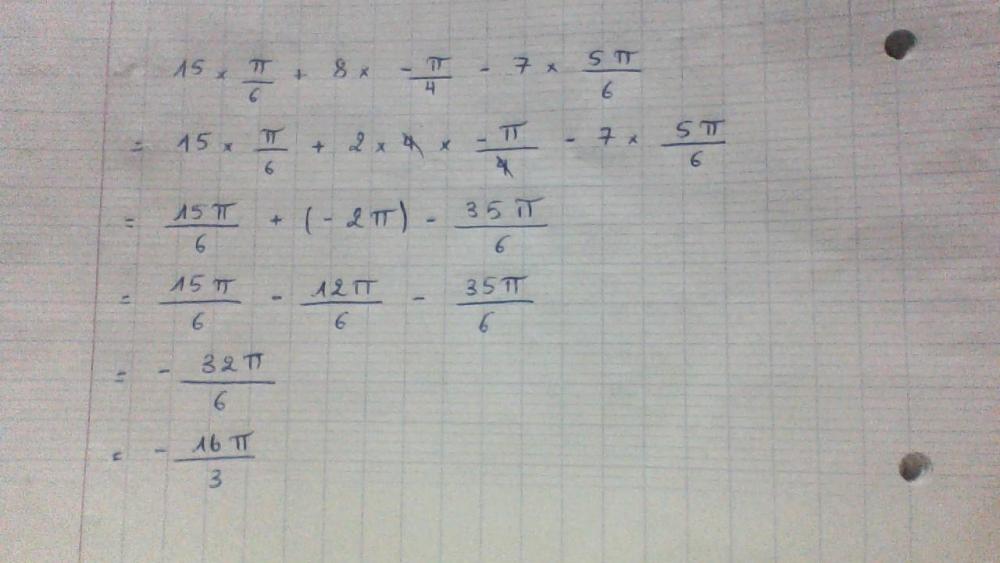 15 × π/6 + 8 × -π/4 - 7 × 5π/6
= 15 × π/6 + 2 × 4 × -π/4 - 7 × 5π/6
= 15π/6 + (-2π) - 35π/6
= 15π/6 - 12π/6 - 35π/6
= - 32π/6
= - 16π/3